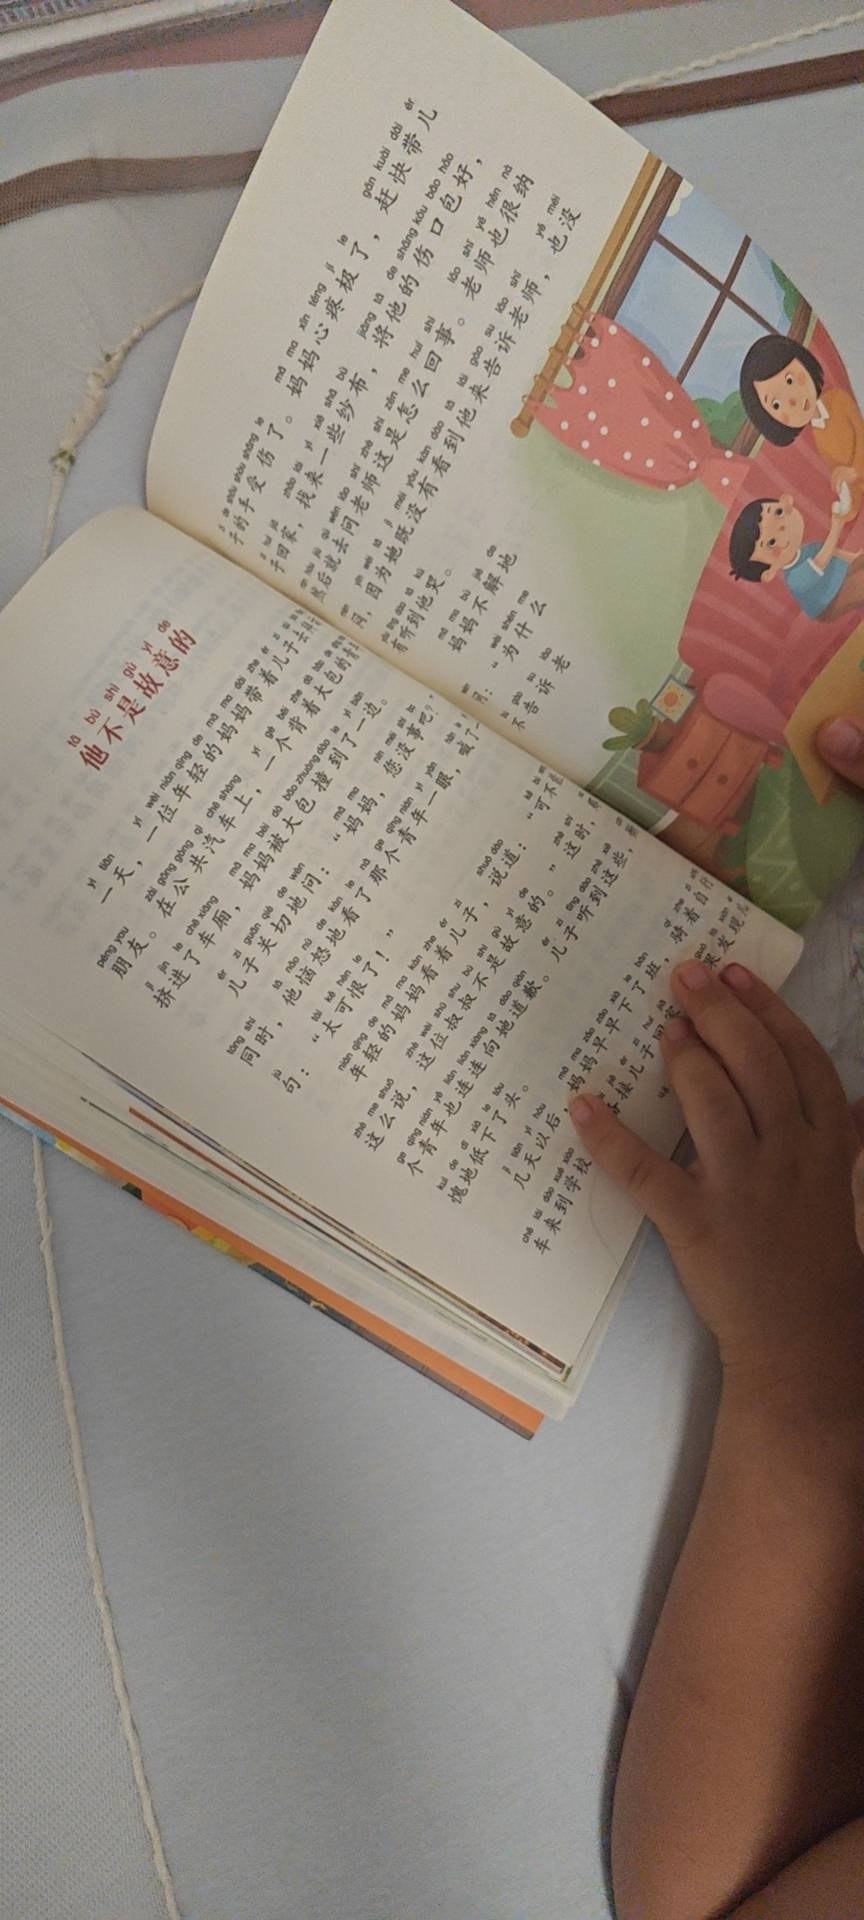 他不是故意的
一天，一位年轻的妈妈带着儿子去
朋友。在公共汽车上，一个背着大包的青
挤进了车厢，妈妈被大包撞到了一边。
儿子关切地问：“妈妈，您没事吧？”
同时，他恼怒地看了那个青年一眼，喊了一
句：“太可恨了！”
年轻的妈妈看着儿子，说道：“可不
这么说，这位叔叔不是故意的。”这时，
个青年也连连向她道歉。儿子听到这些，
愧地低下了头。
几天以后，妈妈早早下了班，骑着自行
车来到学校 接儿子回家 果发现儿
子的手受伤了。妈妈心疼极了，赶快带儿
子回家，找来一些纱布，将他的伤口包好，
然后就去问老师这是怎么回事。老师也很纳
闷，因为她既没有看到他来告诉老师，也没
有听到他哭。
妈妈不解地
问：“为什么
不告诉老